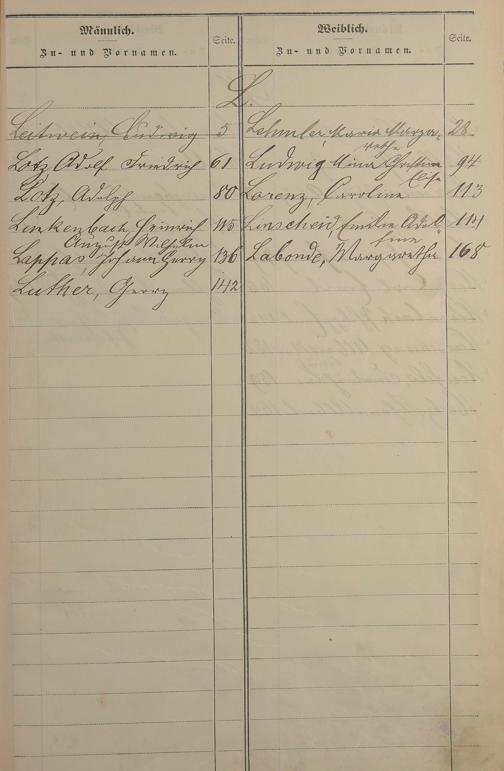 Männlich.
Zu- und Vornamen.
Seite.
Weiblich.
Zu- und Vornamen.
Seite.
L.
Leitwein, Ludwig 5
Lotz, Adolf Friedrich 61
Lotz, Adolph 80
Linkenbach, Heinrich 115
August Wilhelm
Lappas, Johann Georg 136
Luther, Georg 142
Lehmler, Maria Marga- 28
rethe
Ludwig Mina Christina 94
Else
Lorenz, Caroline 113
Linscheid, Emilie Adel- 114
fine
Labonde, Margaretha 168